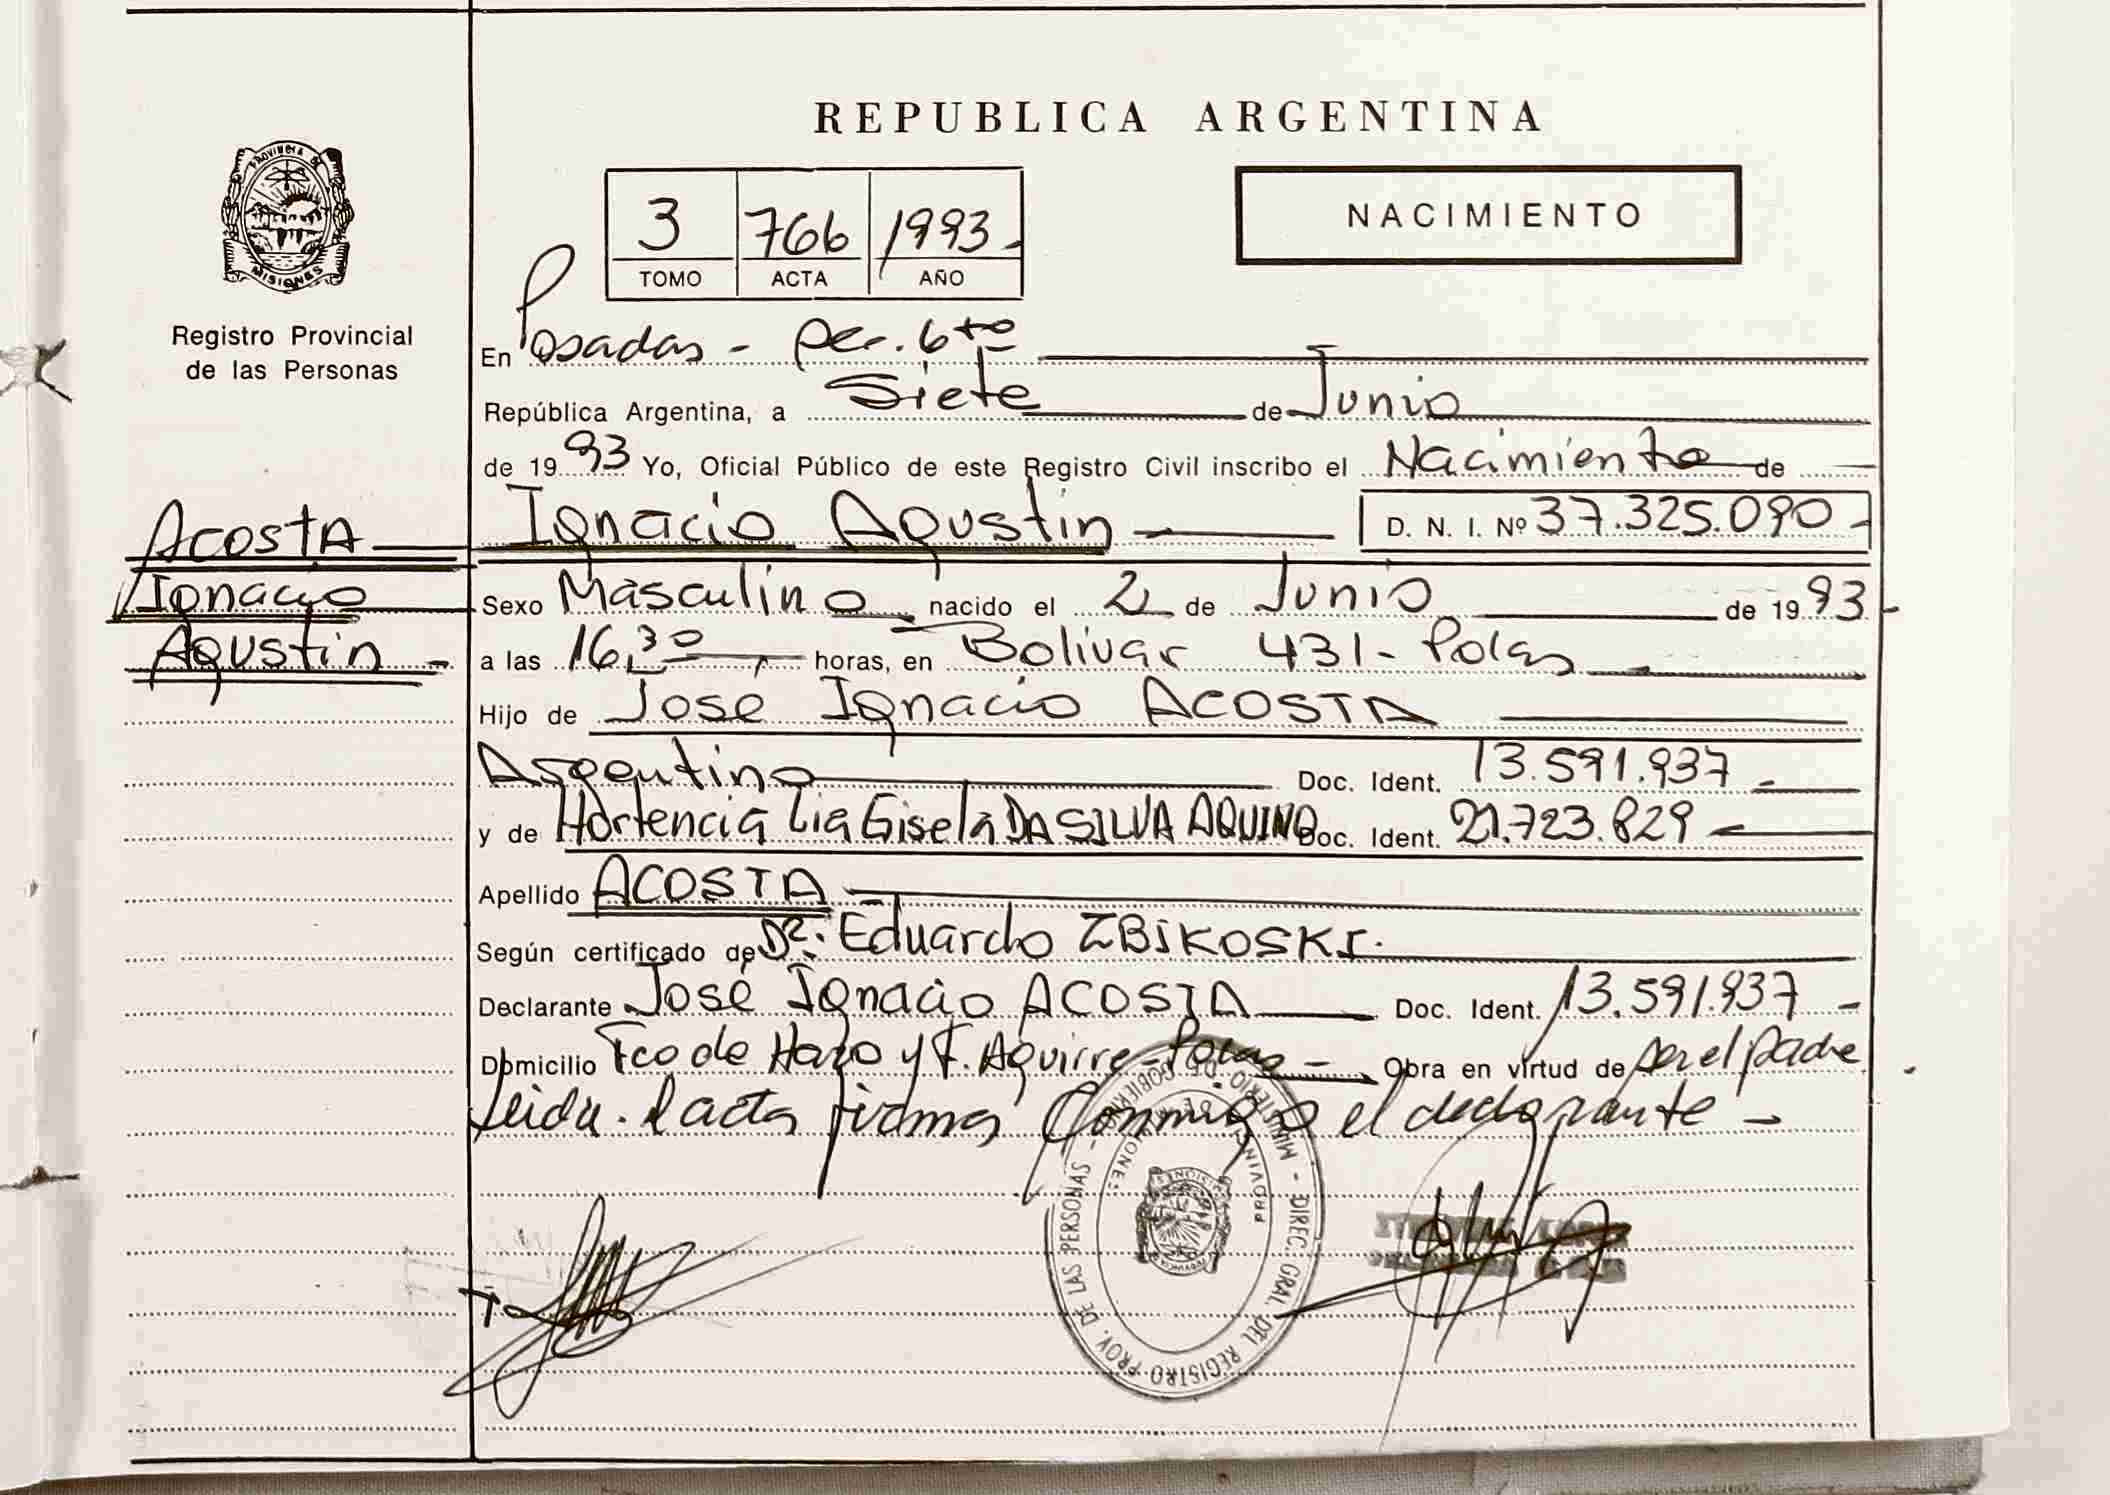 REPUBLICA ARGENTINA
PROVINCIA DE
MISIONES
Registro Provincial
de las Personas
NACIMIENTO
3 766 1993.-
TOMO ACTA AÑO
En Posadas - Sec. 6to
República Argentina, a Siete de Junio
de 1993 Yo, Oficial Público de este Registro Civil inscribo el Nacimiento de
ACOSTA
Ignacio
Agustin -
Ignacio Agustin D. N. I. Nº 37.325.090 -
Sexo Masculino nacido el 2 de Junio de 1993 -
a las 16,30 horas, en Bolivar 431 - Pdas
Hijo de José Ignacio ACOSTA
Argentino Doc. Ident. 13.591.937 -
y de Hortencia Lia Gisela DA SILVA AQUINO Doc. Ident. 21.723.829 -
Apellido ACOSTA
Según certificado de Dr. Eduardo ZBIKOSKI.
Declarante José Ignacio ACOSTA Doc. Ident. 13.591.937 -
Domicilio Fco de Haro y F. Aguirre - Pdas - Obra en virtud de ser el padre
Leida. l acta firma Conmigo el declarante -
MINISTERIO DE GOBIERNO - DIREC. GRAL. DEL REGISTRO PROV. DE LAS PERSONAS -
PROVINCIA DE MISIONES